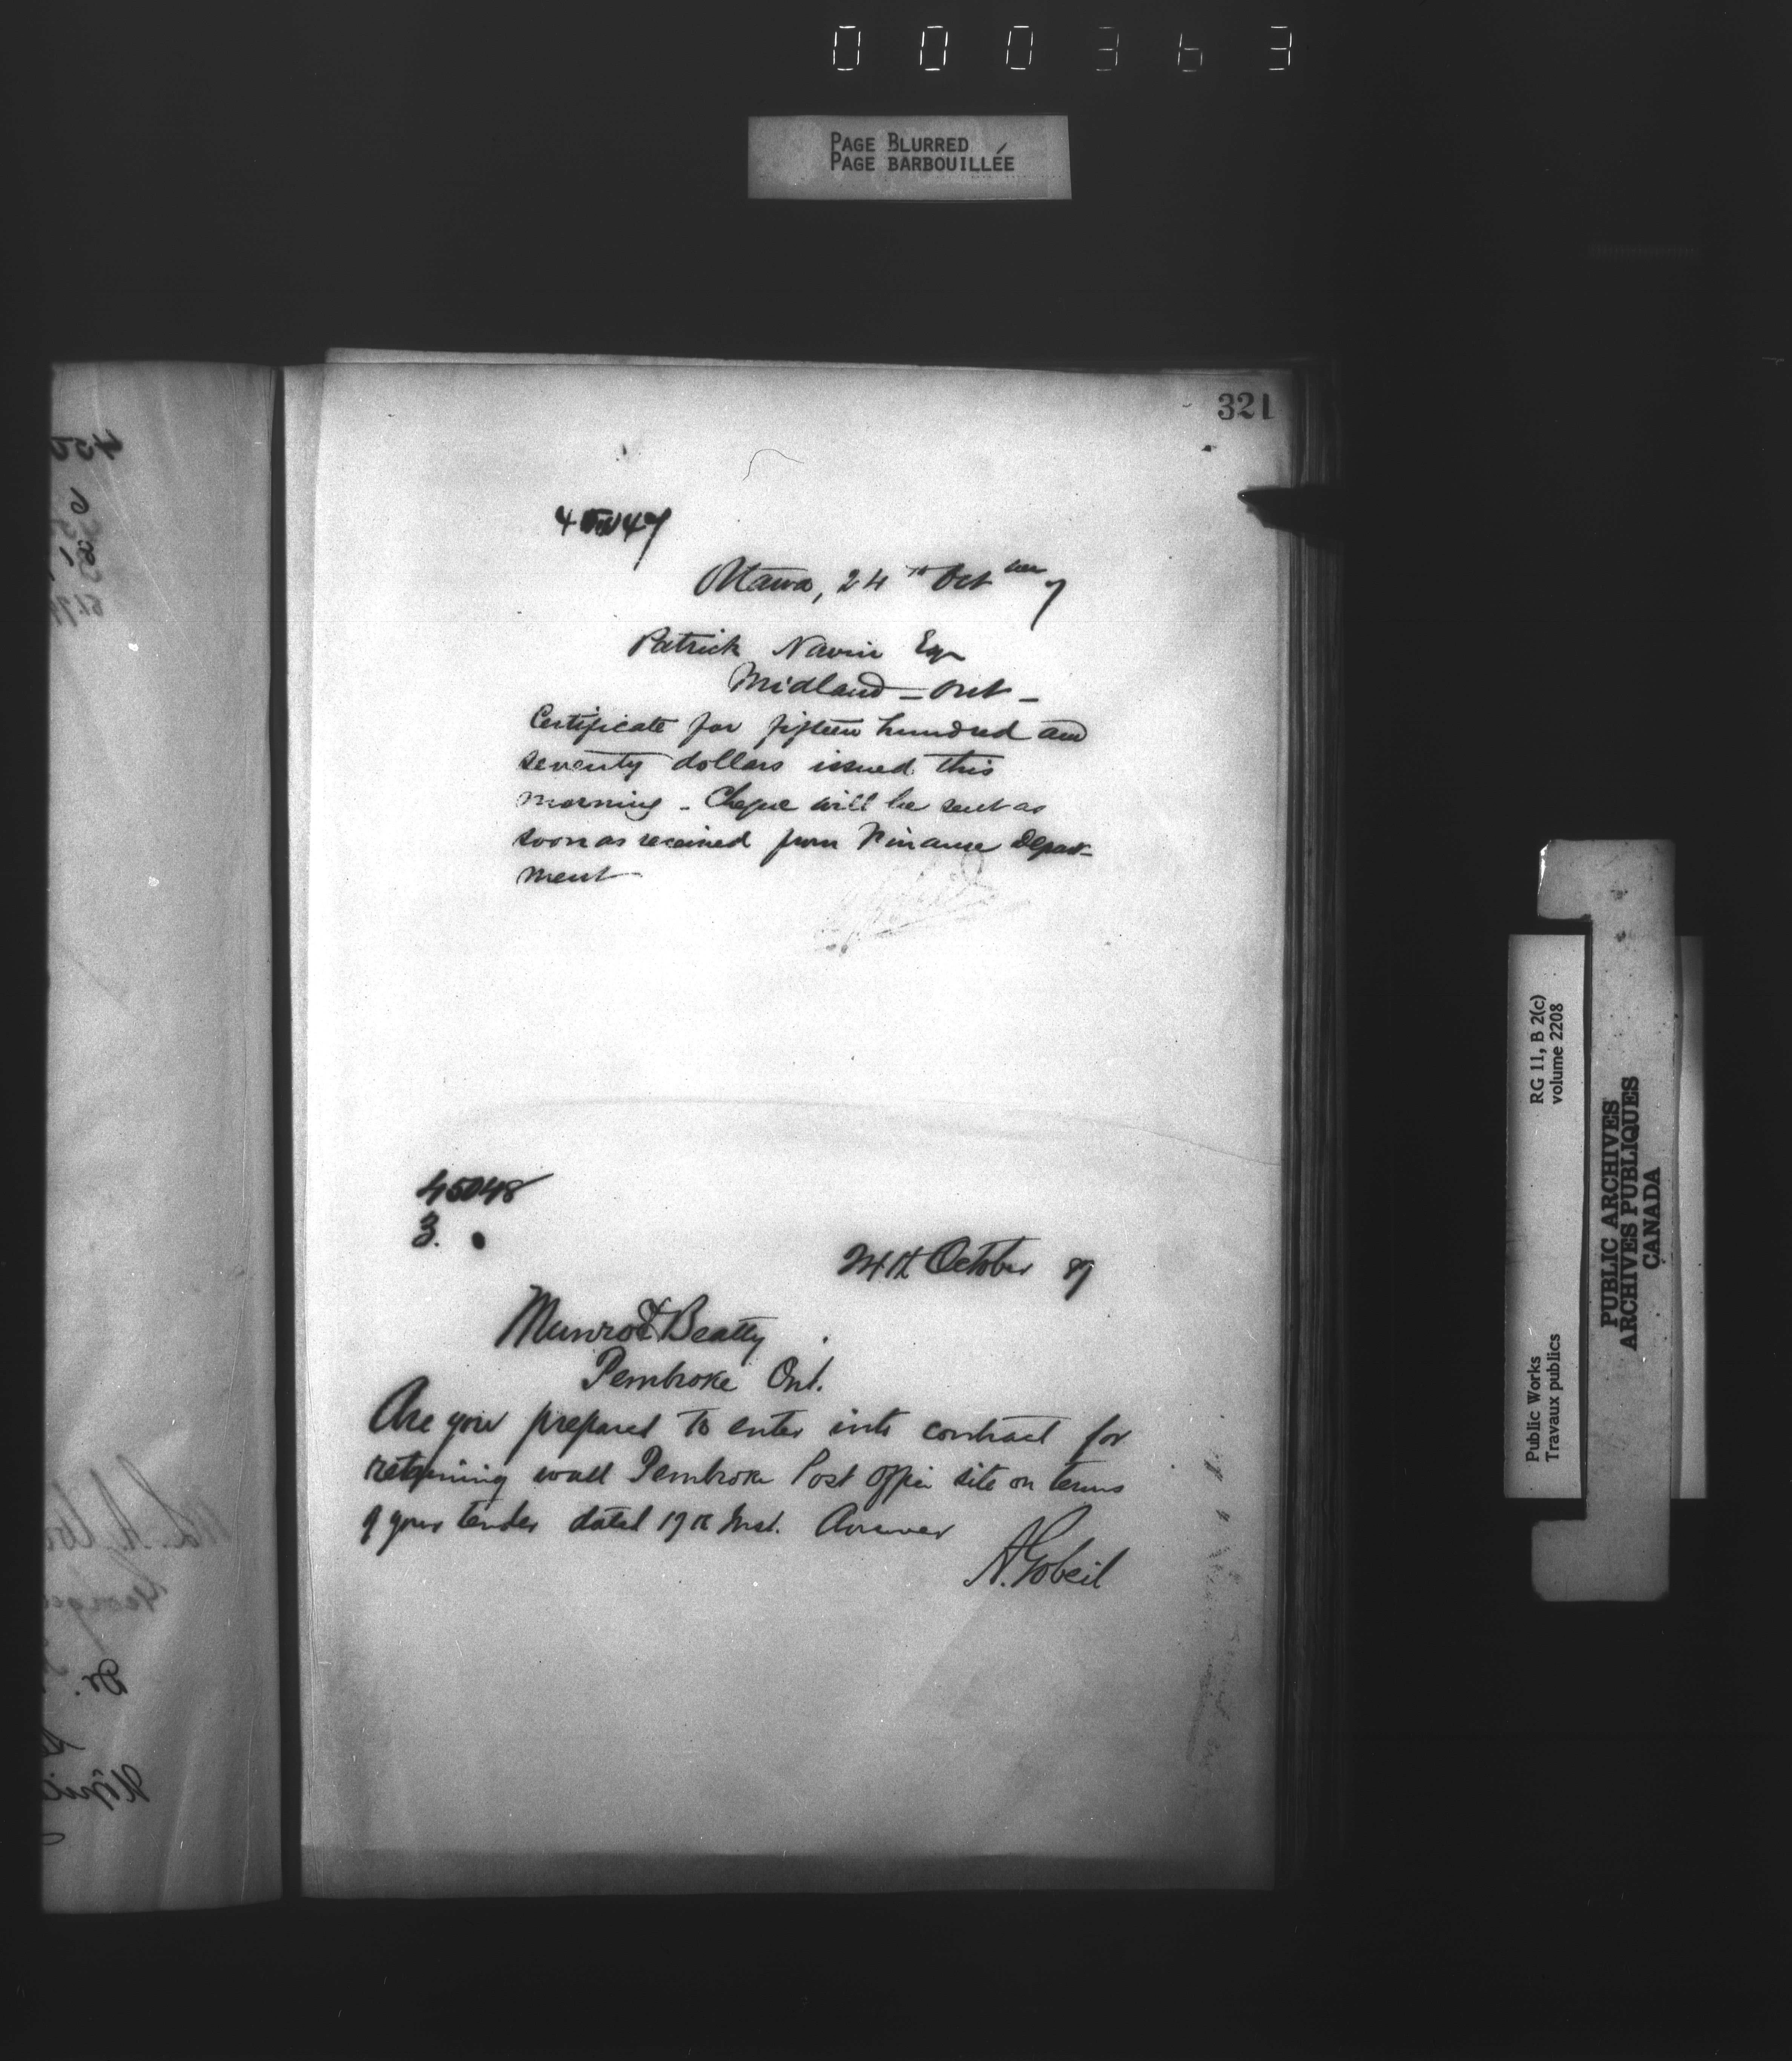 000363
PAGE BLURRED
PAGE BARBOUILLÉE
321
45047
Ottawa, 24th Oct 7
Patrick Navin Esq
Midland - Ont -
Certificate for fifteen hundred and
seventy dollars issued this
morning - Cheque will be sent as
soon as received from Finance Depart-
ment
AGobeil
45048
3.
24th October 87
Munro & Beatty
Pembroke Ont.
Are you prepared to enter into contract for
retaining wall Pembroke Post Office site on terms
of your tender dated 19th Inst. Answer
A.Gobeil
RG 11, B 2(c)
volume 2208
Public Works
Travaux publics
PUBLIC ARCHIVES
ARCHIVES PUBLIQUES
CANADA